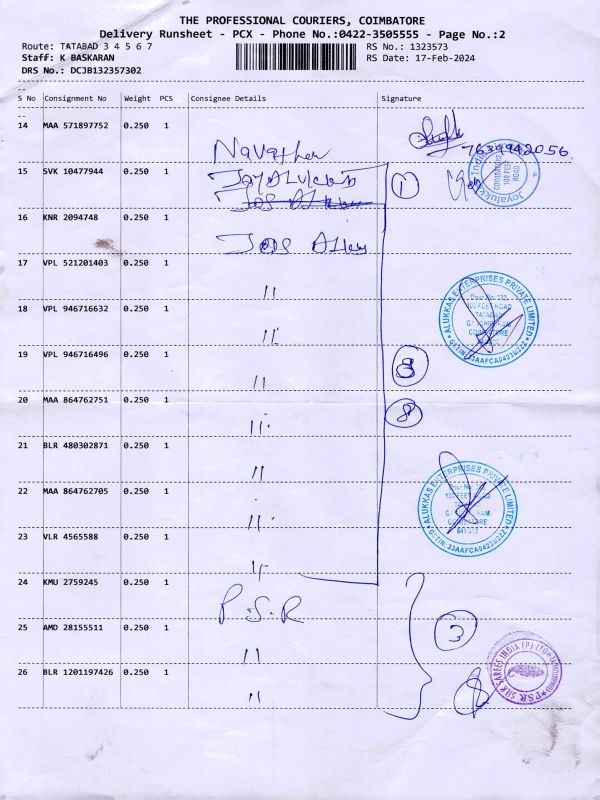 THE PROFESSIONAL COURIERS, COIMBATORE
Delivery Runsheet - PCX - Phone No.:0422-3505555 - Page No.:2
Route: TATABAD 3 4 5 6 7 RS No.: 1323573
Staff: K BASKARAN RS Date: 17-Feb-2024
DRS No.: DCJB132357302
S No Consignment No Weight PCS Consignee Details Signature
14 MAA 571897752 0.250 1
7639942056.
15 SVK 10477944 0.250 1 1
Joyalukkas India
COIMBATORE
100 FEET
ROAD
16 KNR 2094748 0.250 1
Jos Alukkas
17 VPL 521201403 0.250 1 "
ALUKKAS ENTERPRISES PRIVATE LIMITED
GSTIN: 33AAFCA0423M2ZZ
18 VPL 946716632 0.250 1 "
19 VPL 946716496 0.250 1 " 3
20 MAA 864762751 0.250 1 " 8
21 BLR 480302871 0.250 1 "
ALUKKAS ENTERPRISES PRIVATE LIMITED
GSTIN: 33AAFCA0423M2ZZ
22 MAA 864762705 0.250 1 "
23 VLR 4565588 0.250 1 "
24 KMU 2759245 0.250 1 P.S.R
25 AMD 28155511 0.250 1 " 3
26 BLR 1201197426 0.250 1 "
PSR SILK SAREES INDIA (P) LTD